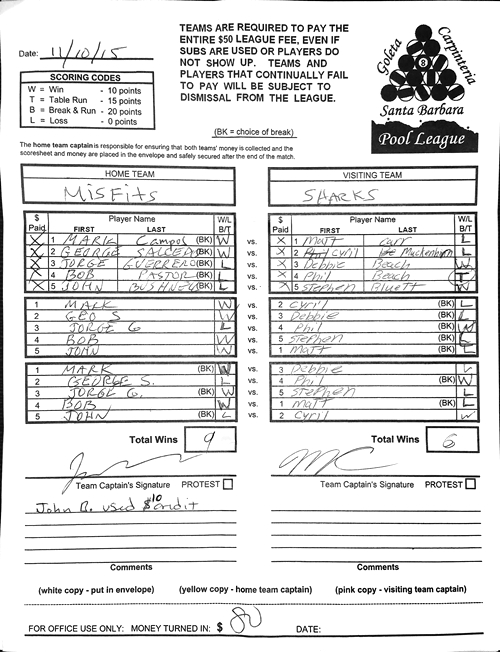 Date: 11/10/15
TEAMS ARE REQUIRED TO PAY THE
ENTIRE $50 LEAGUE FEE, EVEN IF
SUBS ARE USED OR PLAYERS DO
NOT SHOW UP. TEAMS AND
PLAYERS THAT CONTINUALLY FAIL
TO PAY WILL BE SUBJECT TO
DISMISSAL FROM THE LEAGUE.
Goleta
Carpinteria
8
Santa Barbara
Pool League
SCORING CODES
W = Win - 10 points
T = Table Run - 15 points
B = Break & Run - 20 points
L = Loss - 0 points
(BK = choice of break)
The home team captain is responsible for ensuring that both teams' money is collected and the
scoresheet and money are placed in the envelope and safely secured after the end of the match.
HOME TEAM VISITING TEAM
MISFITS SHARKS
$ Paid Player Name FIRST LAST W/L B/T $ Paid Player Name FIRST LAST W/L B/T
X 1 MARK Campos (BK) W vs. X 1 Matt Carr L
X 2 GEORGE SALCEDO (BK) W vs. X 2 Cyril Muckenhirn L
X 3 JORGE GUERRERO (BK) L vs. X 3 Debbie Beach W
X 4 BOB PASTOR (BK) L vs. X 4 Phil Beach
X 5 JOHN (BK) L vs. X 5 Stephen Bluett W
1 MARK W vs. 2 Cyril (BK) L
2 GEO S W vs. 3 Debbie (BK) L
3 JORGE G L vs. 4 Phil (BK) W
4 BOB W vs. 5 Stephen (BK) L
5 JOHN W vs. 1 Matt (BK) L
1 MARK (BK) W vs. 3 Debbie L
2 GEORGE S. L vs. 4 Phil (BK) W
3 JORGE G. (BK) W vs. 5 Stephen L
4 BOB W vs. 1 Matt (BK) L
5 JOHN (BK) L vs. 2 Cyril W
Total Wins 9 Total Wins 6
Team Captain's Signature PROTEST Team Captain's Signature PROTEST
John B. used $10 credit
Comments Comments
(white copy - put in envelope) (yellow copy - home team captain) (pink copy - visiting team captain)
FOR OFFICE USE ONLY: MONEY TURNED IN: $ 80 DATE: